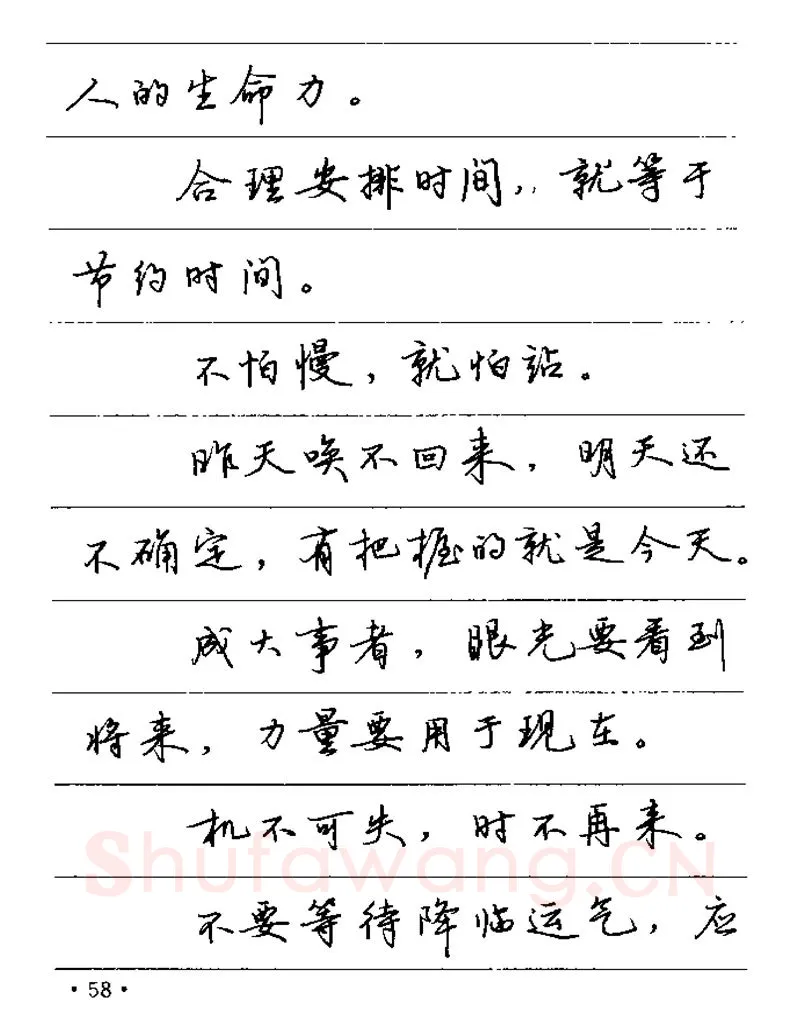 人的生命力。
合理安排时间，就等于
节约时间。
不怕慢，就怕站。
昨天唤不回来，明天还
不确定，有把握的就是今天。
成大事者，眼光要看到
将来，力量要用于现在。
机不可失，时不再来。
Shufawang.CN
不要等待降临运气，应
·58·